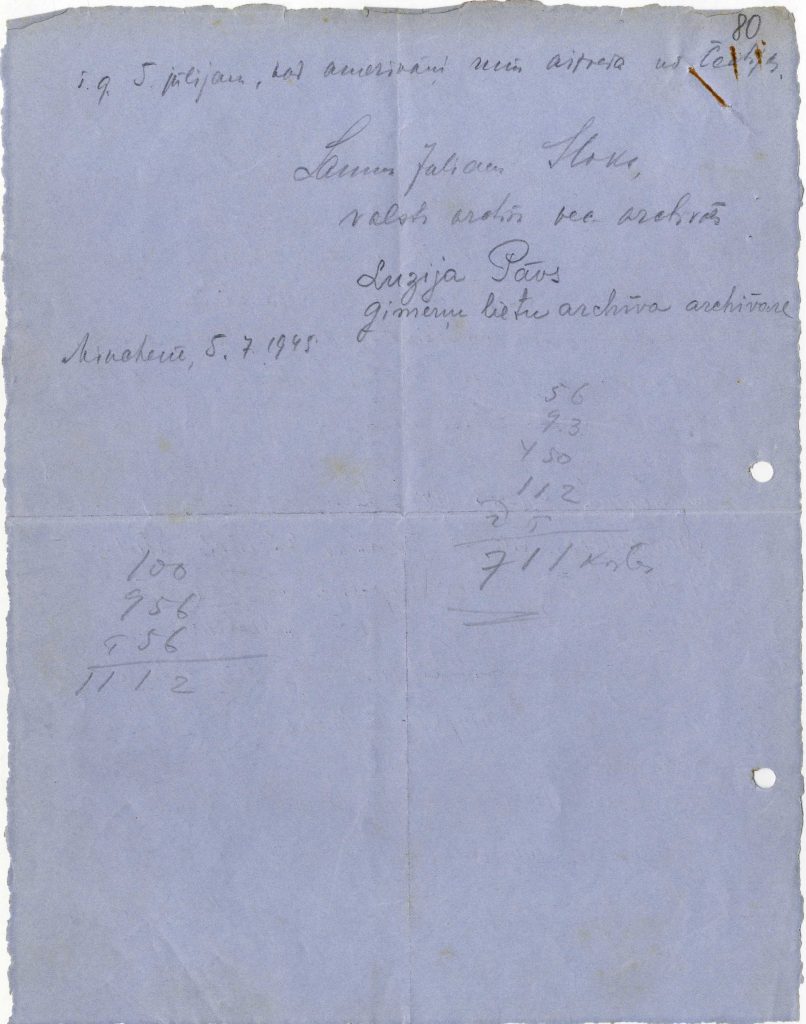 80
š. g. 5. jūlijam, kad amerikāņi mūs aizveda uz Čechijas.
Julians Stoks,
valsts archīva archivārs
Luzija Pāvs
ģimeņu lietu archīva archivāre
Minchenē, 5. 7. 1945
56
93
450
112
711 Kastes
100
956
56
1112